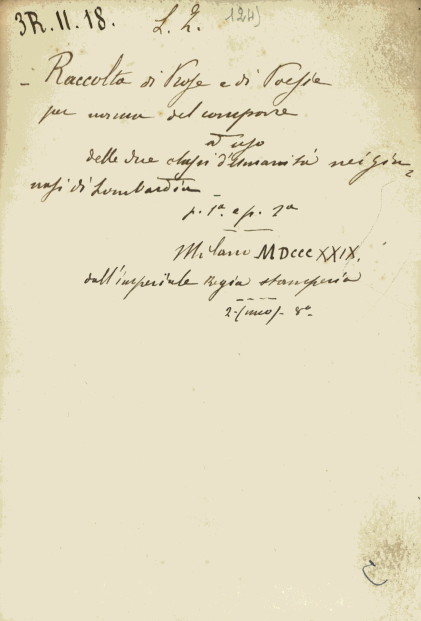 3R.II.18. L. Z. 124)
- Raccolta di Prose e di Poesie
per norma del comporre
ad uso
delle due classi d'umanità nei Gin-
nasi di Lombardia
p. 1ª e p. 2ª
Milano MDCCCXXIX.
dall'imperiale Regia stamperia
2-(uno)- 8º